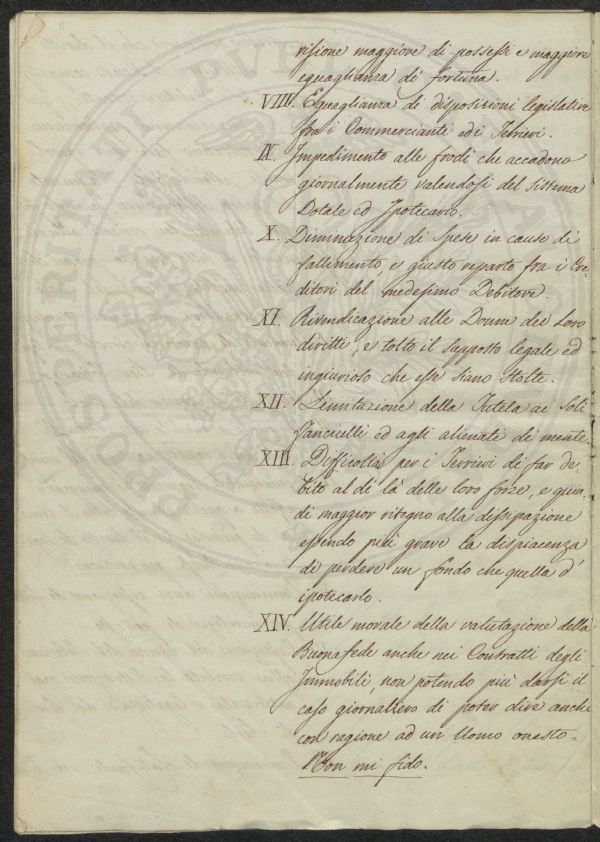 visione maggiore di possessi e maggiore
eguaglianza di fortuna.
VIIIV. Eguaglianza di disposizioni legislative
fra i Commercianti ed i Terrieri.
IX. Impedimento alle frodi che accadono
giornalmente valendosi del sistema
Dotale ed Ipotecario.
X. Diminuzione di Spese in cause di
fallimento, e giusto reparto fra i Cre-
ditori del medesimo Debitore.
XI. Rivendicazione alle Donne dei Loro
diritti, e tolto il supposto legale ed
ingiurioso che esse siano Stolte.
XII. Limitazione della Tutela ai Soli
fanciulli ed agli alienati di mente
XIII. Difficoltà per i Terrieri di far de-
bito al di là delle loro forze, e quin-
di maggior ritegno alla dissipazione
essendo più grave la dispiacenza
di perdere un fondo che quella d'
ipotecarlo.
XIV. Utile morale della valutazione della
Buonafede anche nei Contratti degli
Immobili, non potendo più darsi il
caso giornaliero di poter dire anche
con ragione ad un Uomo onesto-
Non mi fido.
PHOSGRITATI PVB